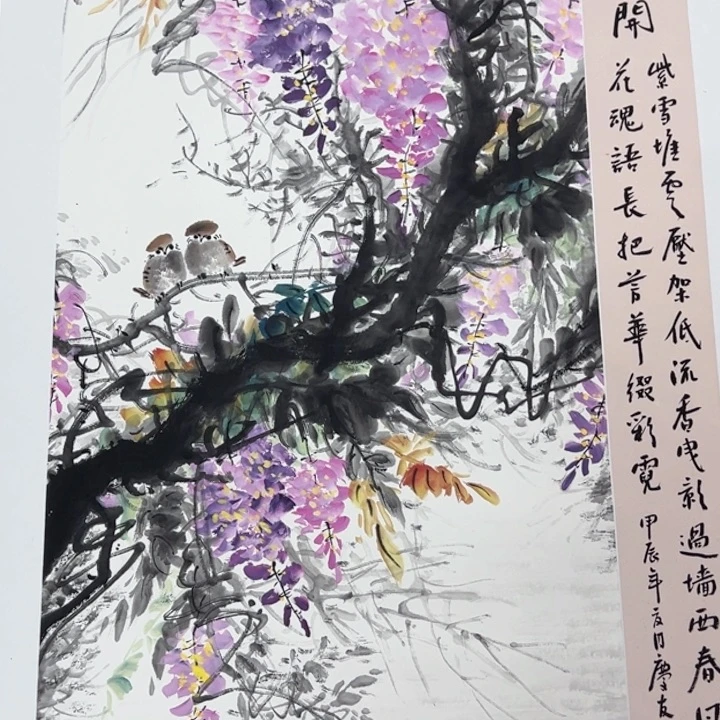 紫雪堆雲壓架低流香曳影過墻西春
開花魂語長把菁華綴彩霓
甲辰年夏月慶友